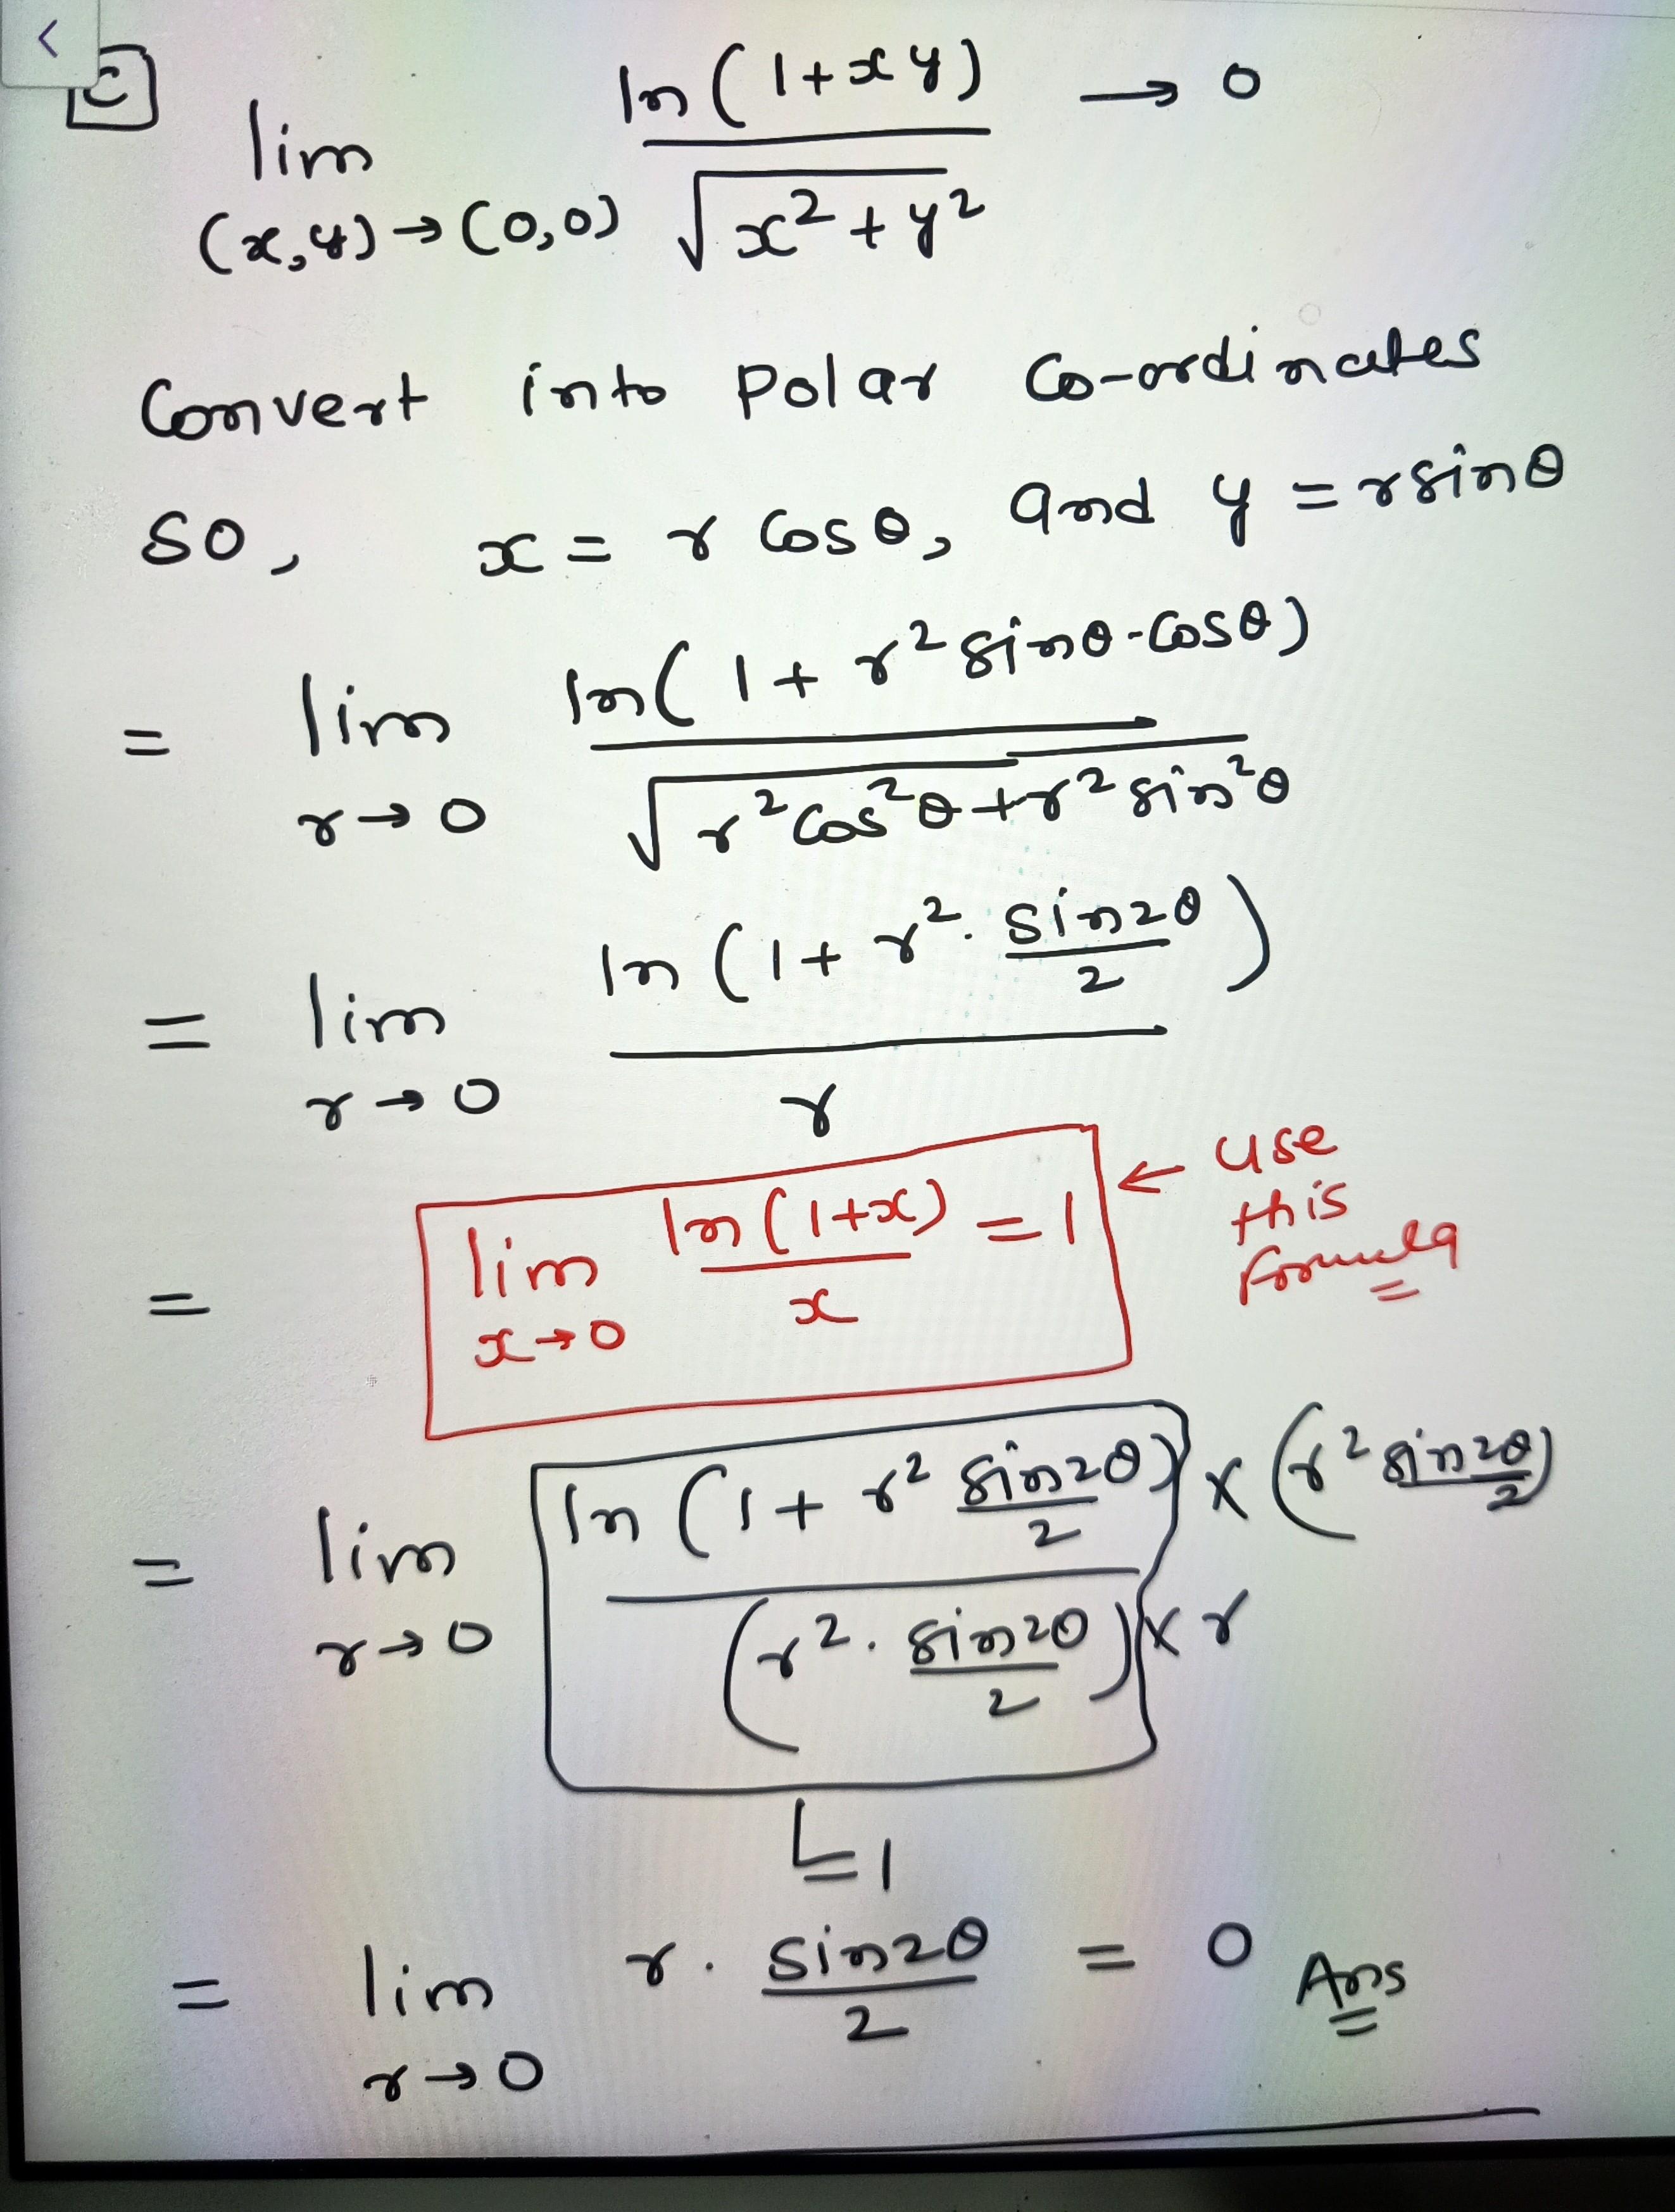 <
C
lim ln(1+xy) → 0
(x,y)→(0,0) √x²+y²
Convert into Polar Co-ordinates
So, x = r Cosθ, and y = rsinθ
= lim ln(1+ r² sinθ·Cosθ)
r→0 √r²Cos²θ+r²sin²θ
= lim ln(1+ r². sin2θ/2)
r→0 r
= lim ln(1+x)/x = 1 ← use
x→0 this
formula
= lim ln(1+ r² sin2θ/2) × (r² sin2θ/2)
r→0 (r². sin2θ/2) × r
1
= lim r. sin2θ/2 = 0 Ans
r→0